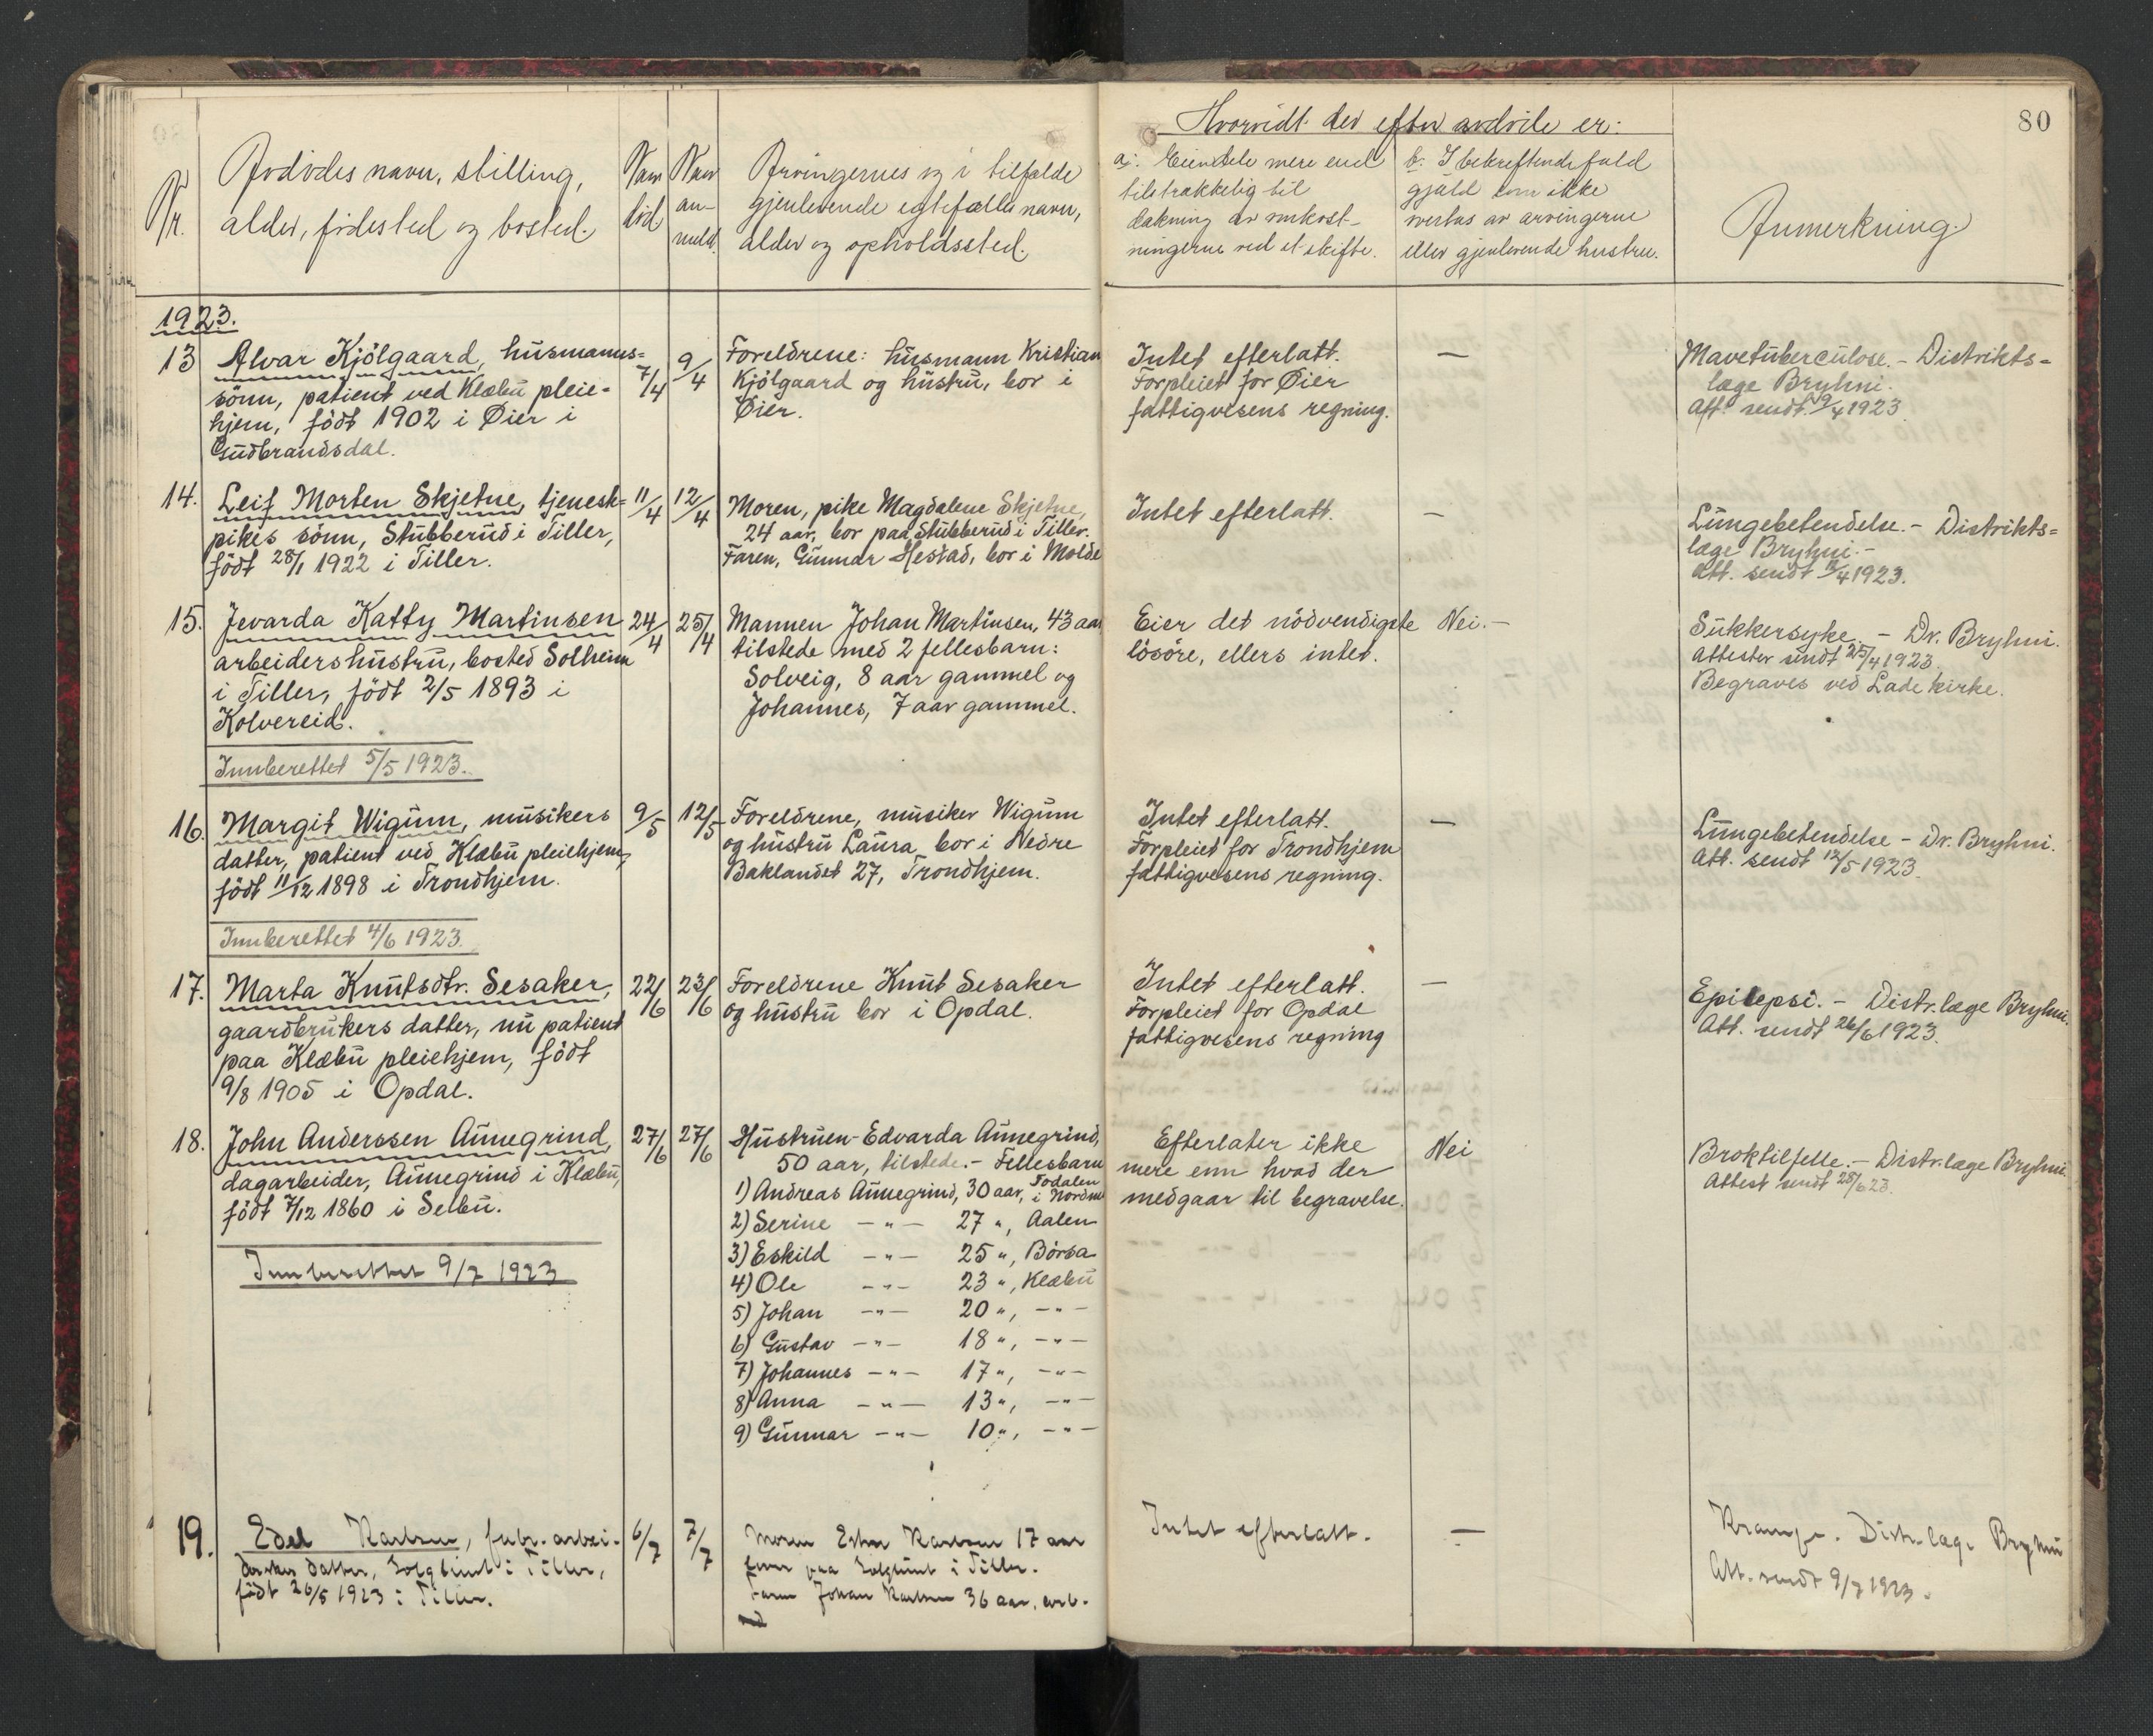 80
Nr.
Avdödes navn, stilling,
alder, födested og bosted.
Naar
död
Naar
an-
meld.
Arvingernes og i tilfælde
gjenlevende egtefælles navn,
alder og opholdssted.
Hvorvidt der efter avdöde er:
a: Eiendele mere end
tilstrækkelig til
dækning av omkost-
ningerne ved et skifte.
b: I bekreftende fald
gjæld som ikke
overtas av arvingerne
eller gjenlevende hustru.
Anmerkning.
1923.
13
Alvar Kjölgaard, husmanns=
sönn, patient ved Klæbu pleie-
hjem, födt 1902 i Öier i
Gudbrandsdal.
7/4
9/4
Foreldrene: husmann Kristian
Kjölgaard og hustru, bor i
Öier.
Intet efterlatt.
Forpleiet for Öier
fattigvesens regning.
—
Mavetuberculose. - Distrikts=
læge Bryhni.
Att. sendt 9/4 1923.
14.
Leif Morten Skjetne, tjenest=
pikes sönn, Stubberud i Tiller,
födt 28/1 1922 i Tiller.
11/4
12/4
Moren, pike Magdalene Skjetne,
24 aar, bor paa Stubberud i Tiller.
Faren, Gunnar Hestad, bor i Molde
Intet efterlatt.
—
Lungebetendelse. - Distrikts=
læge Bryhni. -
Att. sendt 12/4 1923.
15.
Jevarda Katty Martinsen
arbeidershustru, bosted Solheim
i Tiller, födt 2/5 1893 i
Kolvereid.
24/4
25/4
Mannen Johan Martinsen, 43 aar
tilstede med 2 fellesbarn:
Solveig, 8 aar gammel og
Johannes, 7 aar gammel.
Eier det nödvendigste
lösöre, ellers intet.
Nei. -
Sukkersyke. - Dr. Bryhni.
Attester sendt 25/4 1923.
Begraves ved Lade kirke.
Innberettet 5/5 1923.
16.
Margit Wigum, musikers
datter, patient ved Klæbu pleiehjem,
födt 11/12 1898 i Trondhjem.
9/5
12/5
Foreldrene, musiker Wigum
og hustru Laura bor i Nedre
Baklandet 27, Trondhjem.
Intet efterlatt.
Forpleiet for Trondhjem
fattigvesens regning.
—
Lungebetendelse - Dr. Bryhni.
Att. sendt 12/5 1923.
Innberettet 4/6 1923.
17.
Marta Knutsdtr. Sesaker,
gaardbrukers datter, nu patient
paa Klæbu pleiehjem, födt
9/8 1905 i Opdal.
22/6
23/6
Foreldrene Knut Sesaker
og hustru bor i Opdal.
Intet efterlatt.
Forpleiet for Opdal
fattigvesens regning
—
Epilepsi. - Distr.læge Bryhni.
Att. sendt 26/6 1923.
18.
John Anderssen Aunegrind,
dagarbeider, Aunegrind i Klæbu,
födt 7/12 1860 i Selbu.
27/6
27/6
Hustruen Edvarda Aunegrind,
50 aar, tilstede. - Fellesbarn
1) Andreas Aunegrind, 30 aar, Todalen i Nordm
2) Serine —"— 27 ", Aalen
3) Eskild —"— 25 ", Börsa
4) Ole —"— 23 ", Klæbu
5) Johan —"— 20 ", —"—
6) Gustav —"— 18 ", —"—
7) Johannes —"— 17 ", —"—
8) Anna —"— 13 ", —"—
9) Gunnar —"— 10 ", —"—
Efterlater ikke
mere enn hvad der
medgaar til begravelse.
Nei
Broktilfelle. - Distr.læge Bryhni.
Attest sendt 28/6 23.
Innberettet 9/7 1923
19.
Edel Karlsen, fabr. arbei-
derskes datter, Solglimt i Tiller,
födt 26/5 1923 i Tiller.
6/7
7/7
Moren Karlsen 17 aar
paa Solglimt i Tiller.
Faren Johan Karlsen 36 aar, arb.
Intet efterlatt.
—
Krampe. Distr.læge Bryhni
Att. sendt 9/7 1923.